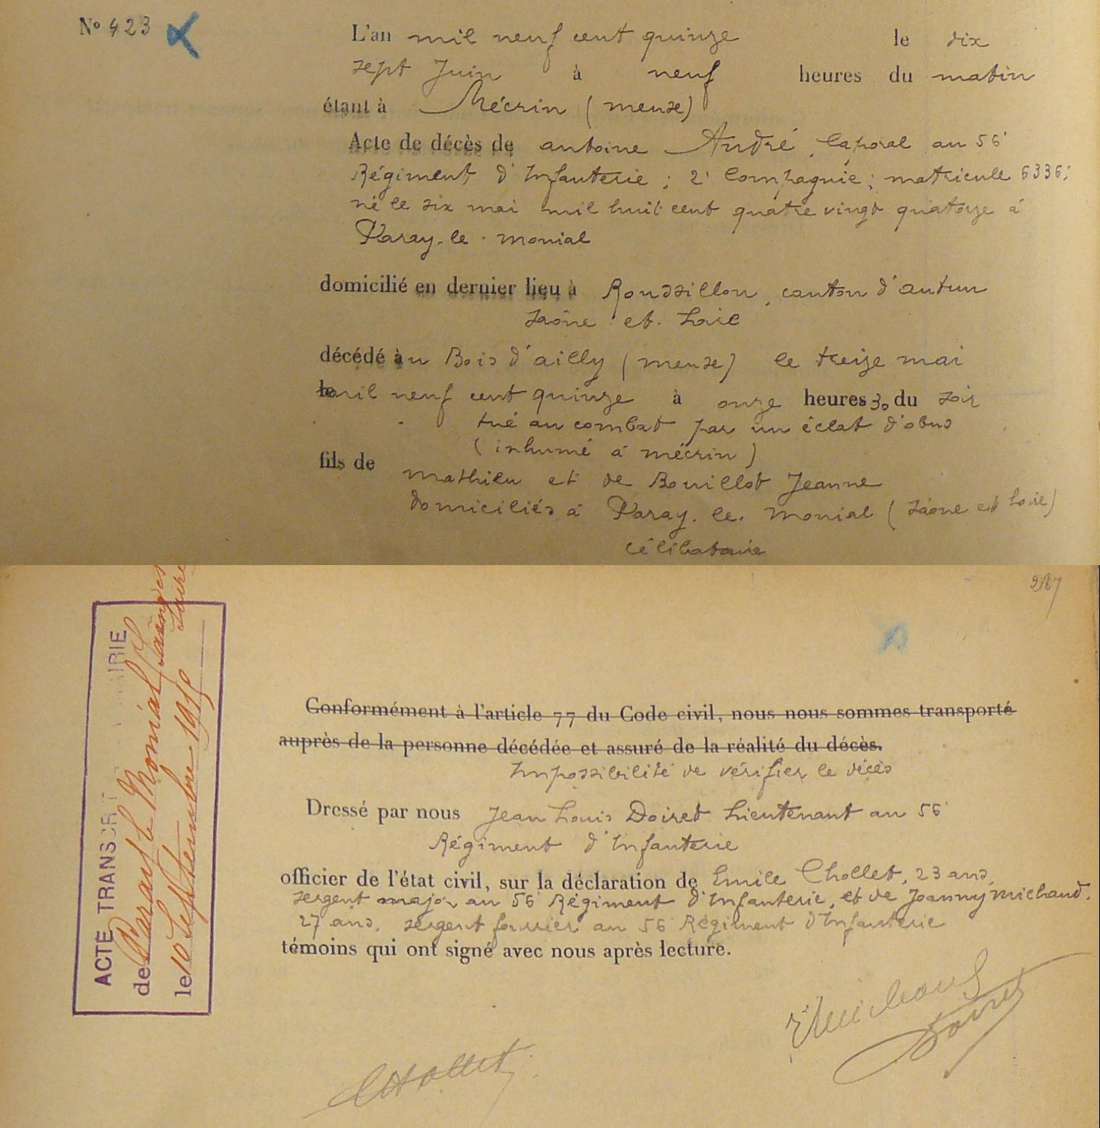 N° 423
L'an mil neuf cent quinze le dix
sept Juin à neuf heures du matin
étant à Mécrin (meuse)
Acte de décès de antoine André, Caporal au 56e
Régiment d'Infanterie ; 2e Compagnie ; matricule 6336 ;
né le six mai mil huit cent quatre vingt quatorze à
Paray-le-monial
domicilié en dernier lieu à Roussillon, canton d'autun
Saône-et-Loire
décédé au Bois d'ailly (meuse) le treize mai
le mil neuf cent quinze à onze heures 30 du soir
tué au combat par un éclat d'obus
(inhumé à mécrin)
fils de mathieu et de Bouillot Jeanne
domiciliés à Paray-le-monial (Saône et Loire)
célibataire
217
ACTE TRANSCRIT MAIRIE
de Paray le Monial
le 10 Septembre 1915
Conformément à l'article 77 du Code civil, nous nous sommes transporté
auprès de la personne décédée et assuré de la réalité du décès.
Impossibilité de vérifier le décès
Dressé par nous Jean Louis Doiret Lieutenant au 56e
Régiment d'Infanterie
officier de l'état civil, sur la déclaration de Emile Chollet, 23 ans,
sergent major au 56e Régiment d'Infanterie, et de Joanny michaud,
27 ans, sergent fourrier au 56e Régiment d'Infanterie
témoins qui ont signé avec nous après lecture.
Michaud
Doiret
Chollet